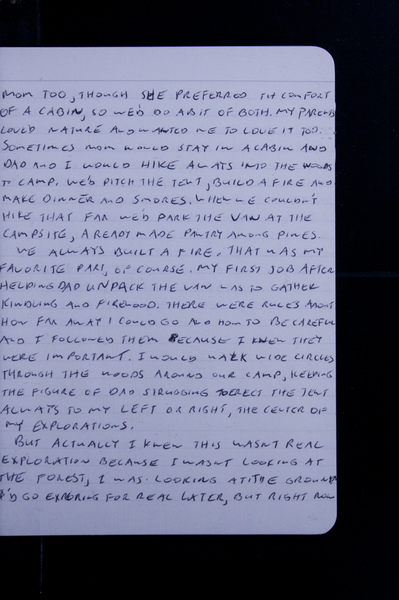 MOM TOO, THOUGH SHE PREFERRED TH COMFORT
OF A CABIN, SO WE'D DO A BIT OF BOTH. MY PARENTS
LOVED NATURE AND WANTED ME TO LOVE IT TOO.
SOMETIMES MOM WOULD STAY IN A CABIN AND
DAD AND I WOULD HIKE ALWAYS INTO THE WOODS
TO CAMP. WE'D PITCH THE TENT, BUILD A FIRE AND
MAKE DINNER AND SMORES. WHEN WE COULDN'T
HIKE THAT FAR WE'D PARK THE VAN AT THE
CAMPSITE, A READY MADE PANTRY AMONG PINES.
WE ALWAYS BUILT A FIRE. THAT WAS MY
FAVORITE PART, OF COURSE. MY FIRST JOB AFTER
HELPING DAD UNPACK THE VAN WAS TO GATHER
KINDLING AND FIREWOOD. THERE WERE RULES ABOUT
HOW FAR AWAY I COULD GO AND HOW TO BE CAREFUL
AND I FOLLOWED THEM BECAUSE I KNEW THEY
WERE IMPORTANT. I WOULD WALK WIDE CIRCLES
THROUGH THE WOODS AROUND OUR CAMP, KEEPING
THE FIGURE OF DAD STRUGGING TO ERECT THE TENT
ALWAYS TO MY LEFT OR RIGHT, THE CENTER OF
MY EXPLORATIONS.
BUT ACTUALLY I KNEW THIS WASNT REAL
EXPLORATION BECAUSE I WASNT LOOKING AT
THE FOREST, I WAS LOOKING AT THE GROUND
I'D GO EXPLORING FOR REAL LATER, BUT RIGHT NOW